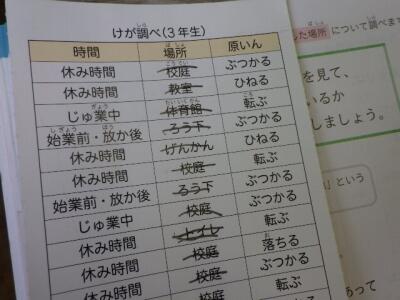 けが調べ(3年生)
時間 場所 原いん
休み時間 校庭 ぶつかる
休み時間 教室 ひねる
じゅ業中 体育館 転ぶ
始業前・放か後 ろう下 ぶつかる
休み時間 げんかん ひねる
休み時間 校庭 転ぶ
始業前・放か後 ろう下 ぶつかる
じゅ業中 校庭 ぶつかる
休み時間 トイレ 転ぶ
休み時間 校庭 落ちる
休み時間 校庭 ぶつかる
校庭 転ぶ
した場所について調べます
を見て、
いるか
しましょう。
」という
あって